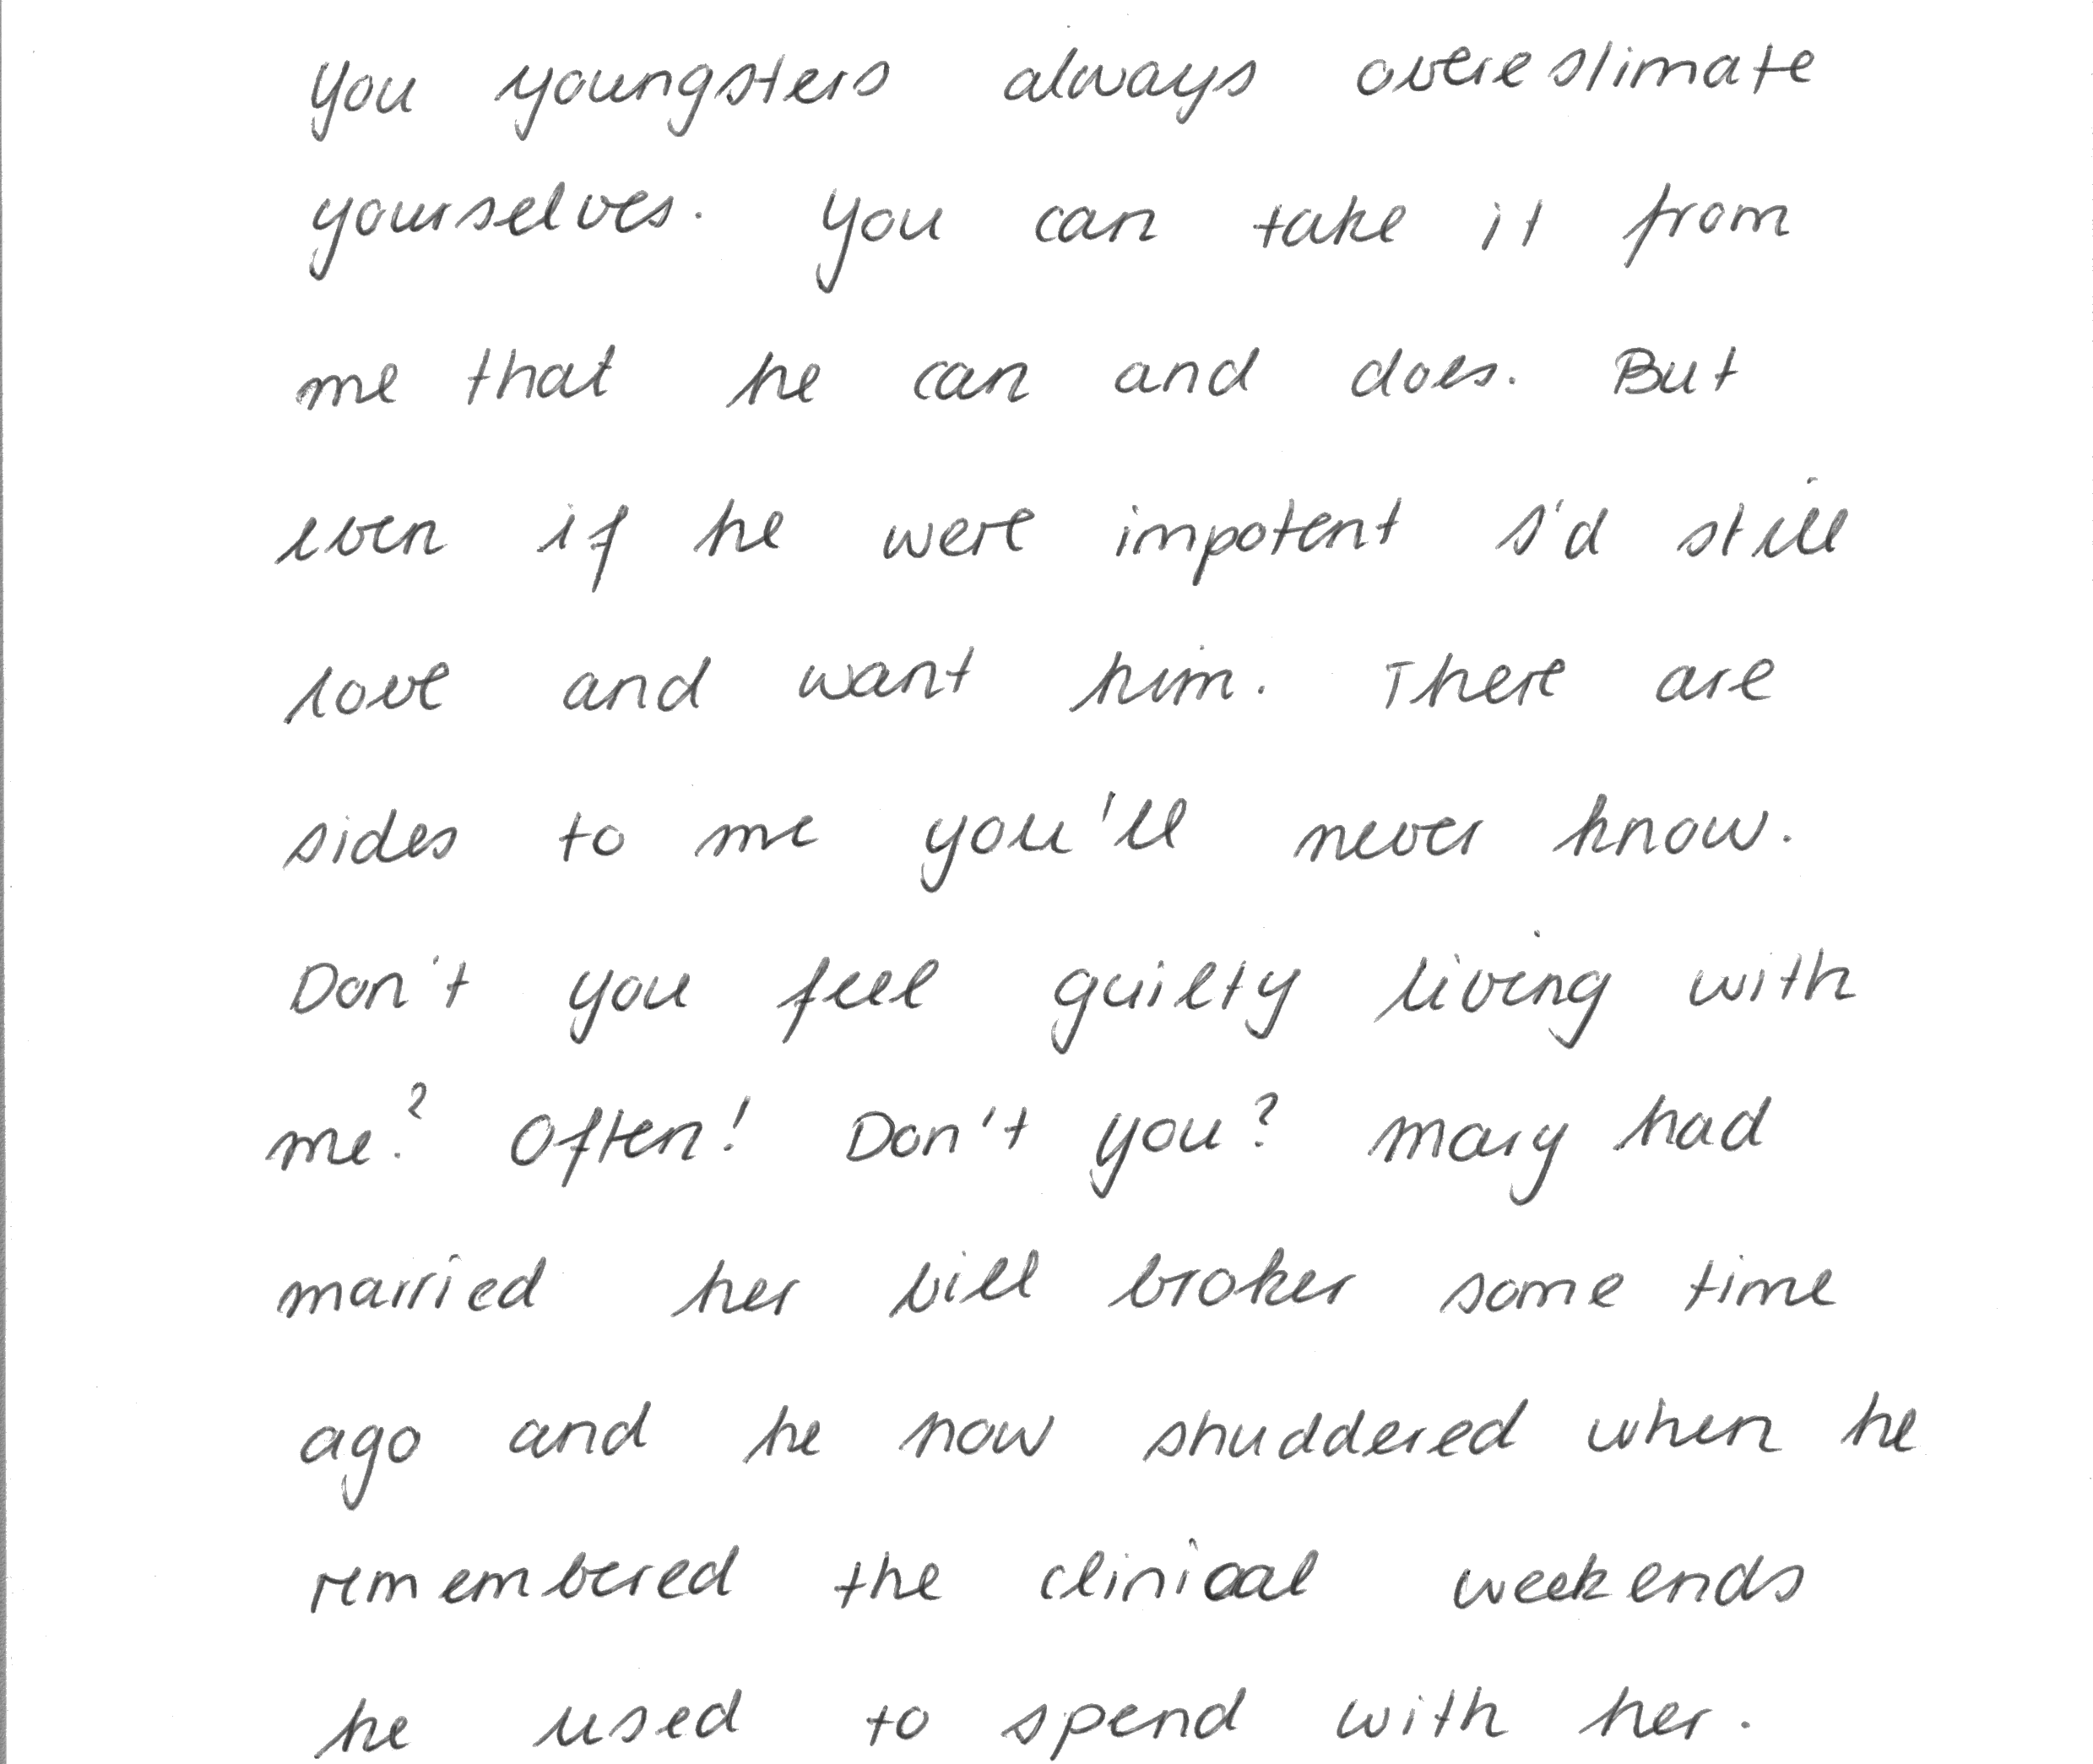 You youngsters always overestimate
yourselves. You can take it from
me that he can and does. But
even if he were impotent I'd still
love and want him. There are
sides to me you'll never know.
Don't you feel guilty living with
me? Often! Don't you? Mary had
married her bill broker some time
ago and he now shuddered when he
remembered the clinical weekends
he used to spend with her.